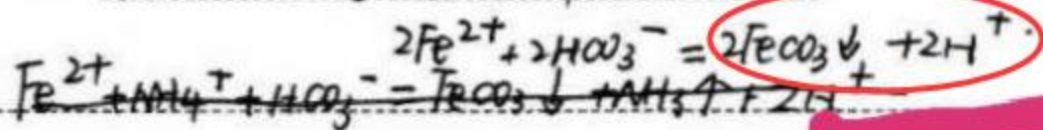 2Fe²⁺+2HCO₃⁻=2FeCO₃↓+2H⁺.
Fe²⁺+NH₄⁺+HCO₃⁻=FeCO₃↓+NH₃↑+2H⁺